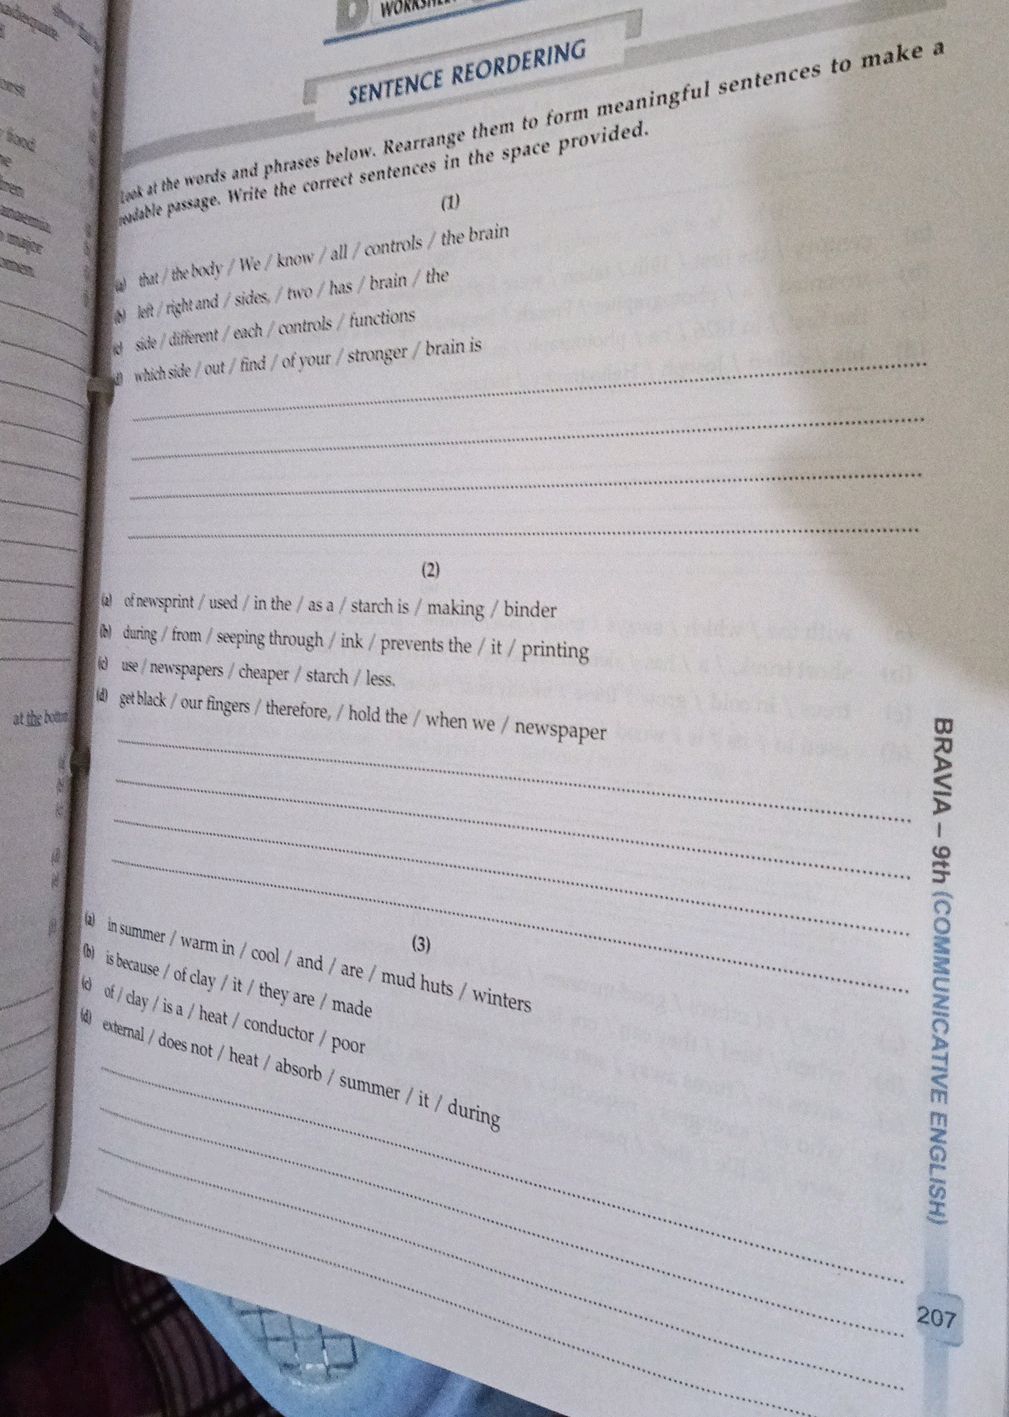 SENTENCE REORDERING
Look at the words and phrases below. Rearrange them to form meaningful sentences to make a
readable passage. Write the correct sentences in the space provided.
(1)
(a) that / the body / We / know / all / controls / the brain
(b) left / right and / sides, / two / has / brain / the
(c) side / different / each / controls / functions
(d) which side / out / find / of your / stronger / brain is
(2)
(a) of newsprint / used / in the / as a / starch is / making / binder
(b) during / from / seeping through / ink / prevents the / it / printing
(c) use / newspapers / cheaper / starch / less.
(d) get black / our fingers / therefore, / hold the / when we / newspaper
(3)
(a) in summer / warm in / cool / and / are / mud huts / winters
(b) is because / of clay / it / they are / made
(c) of / clay / is a / heat / conductor / poor
(d) external / does not / heat / absorb / summer / it / during
BRAVIA – 9th (COMMUNICATIVE ENGLISH)
207
at the bottom